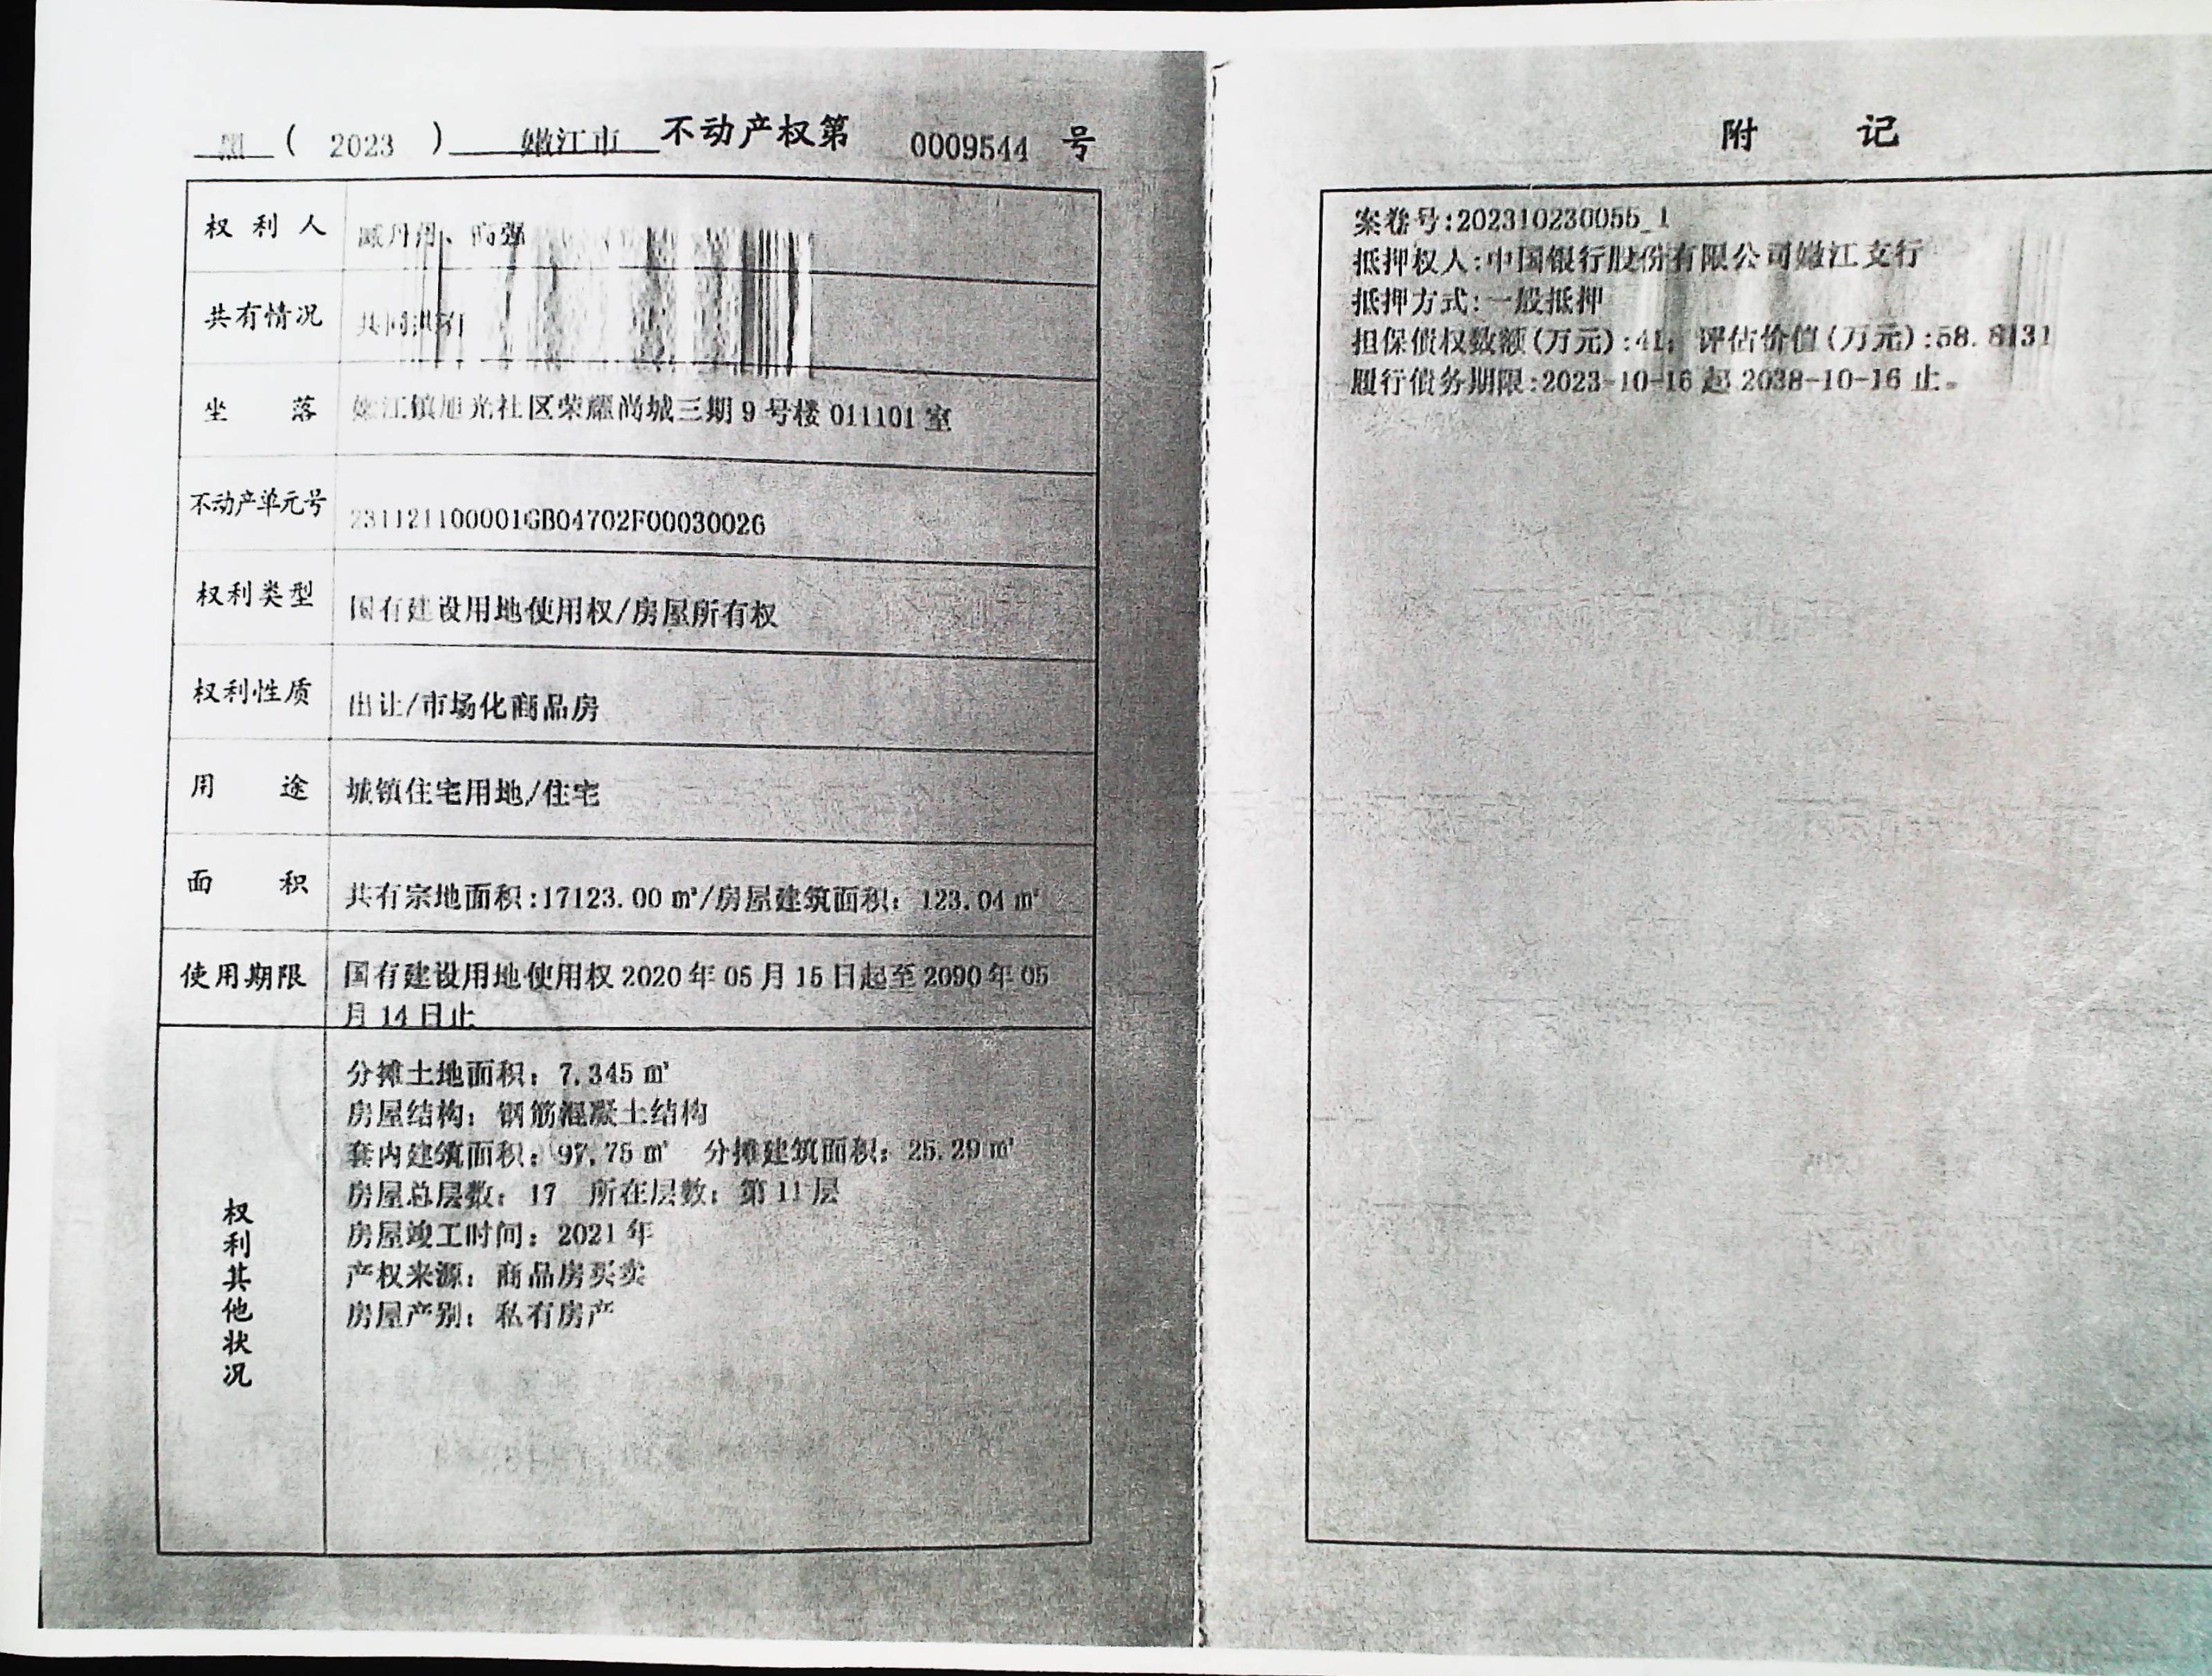 黑 ( 2023 ) 嫩江市 不动产权第 0009544 号
权利人 臧丹丹、高强
共有情况 共同共有
坐落 嫩江镇旭光社区荣耀尚城三期 9 号楼 011101 室
不动产单元号 231121100001GB04702F00030026
权利类型 国有建设用地使用权/房屋所有权
权利性质 出让/市场化商品房
用途 城镇住宅用地/住宅
面积 共有宗地面积:17123.00 ㎡/房屋建筑面积：123.04 ㎡
使用期限 国有建设用地使用权 2020 年 05 月 15 日起至 2090 年 05
月 14 日止
权利其他状况
分摊土地面积：7.345 ㎡
房屋结构：钢筋混凝土结构
套内建筑面积：97.75 ㎡ 分摊建筑面积：25.29 ㎡
房屋总层数：17 所在层数：第 11 层
房屋竣工时间：2021 年
产权来源：商品房买卖
房屋产别：私有房产
附记
案卷号:202310230055_1
抵押权人:中国银行股份有限公司嫩江支行
抵押方式:一般抵押
担保债权数额(万元):41；评估价值(万元):58.8131
履行债务期限:2023-10-16 起 2038-10-16 止。